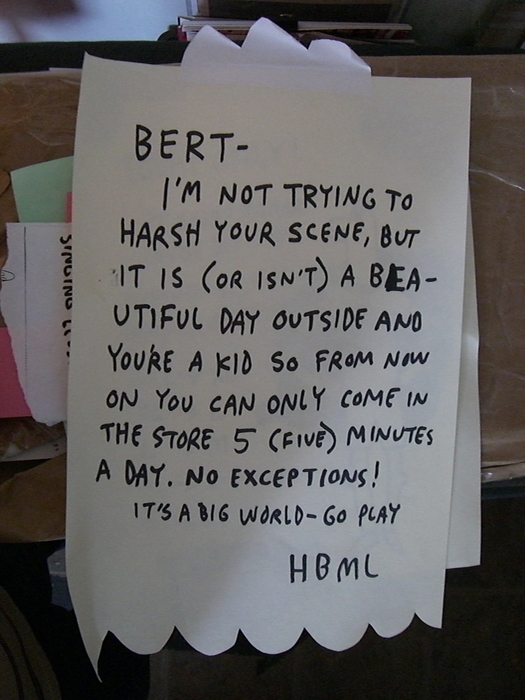 BERT-
I'M NOT TRYING TO
HARSH YOUR SCENE, BUT
IT IS (OR ISN'T) A BEA-
UTIFUL DAY OUTSIDE AND
YOU'RE A KID SO FROM NOW
ON YOU CAN ONLY COME IN
THE STORE 5 (FIVE) MINUTES
A DAY. NO EXCEPTIONS!
IT'S A BIG WORLD-GO PLAY
HBML